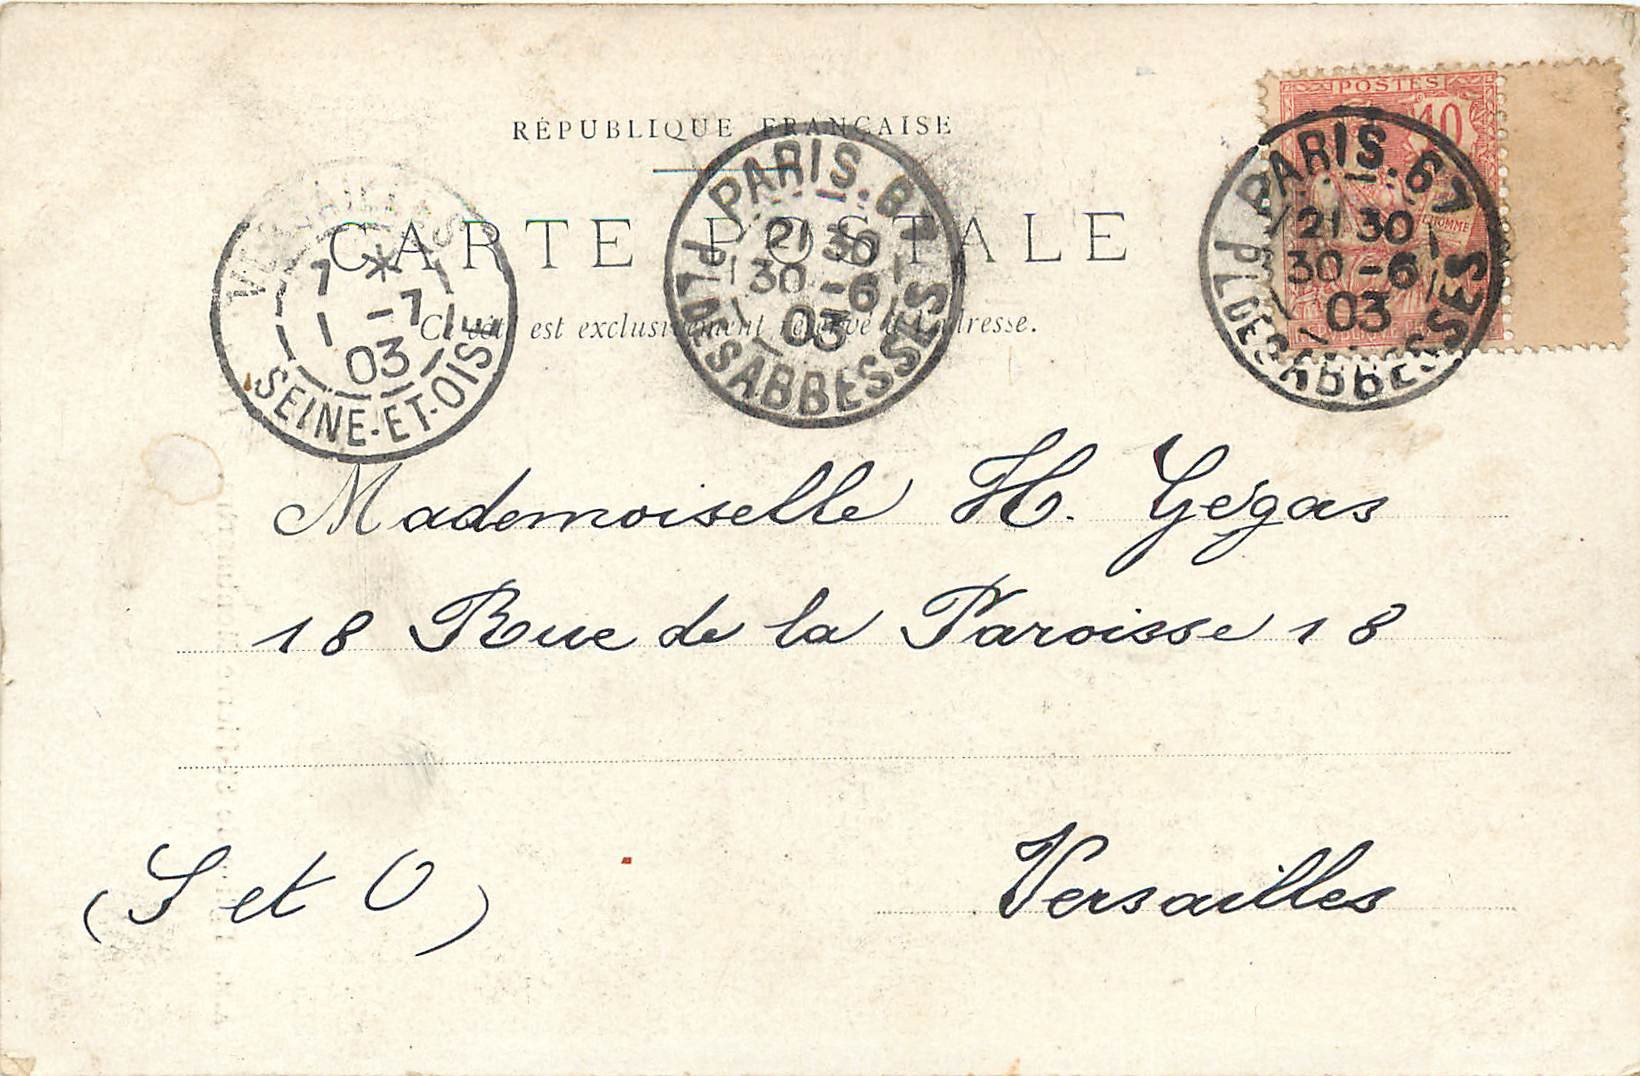 RÉPUBLIQUE FRANÇAISE
CARTE POSTALE
Ce côté est exclusivement réservé à l'adresse.
POSTES
10
L'HOMME
PARIS. 67
21 30
30 -6
03
PL. DES ABBESSES
PARIS. 67
21 30
30 -6
03
PL. DES ABBESSES
VERSAILLES
7 *
1 -7
03
SEINE-ET-OISE
Mademoiselle H. Gégas
18 Rue de la Paroisse 18
Versailles
(S et O)